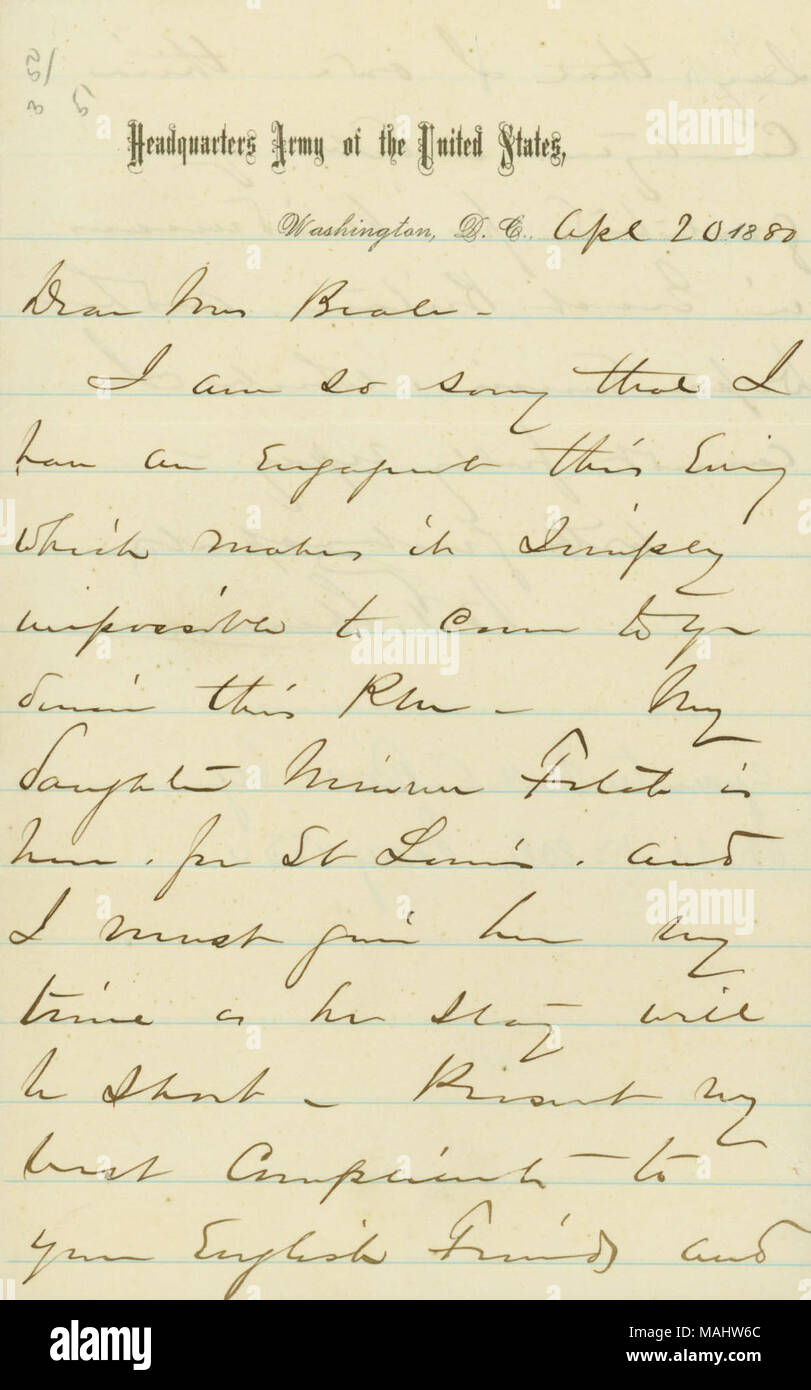 Headquarters Army of the United States,
Washington, D. C. Apl 20 1880
Dear Mrs Beale -
I am so sorry that I
have an Engagement this Eving
which makes it Simply
impossible to Come to yr
this -  My
daughter Minnie Fitch is
here. fr St Louis. and
I must give her my
time as her Stay will
be Short - Present my
best Compliments to
your English Friends and
alamy stock photo
Image ID: MAHW6C
www.alamy.com